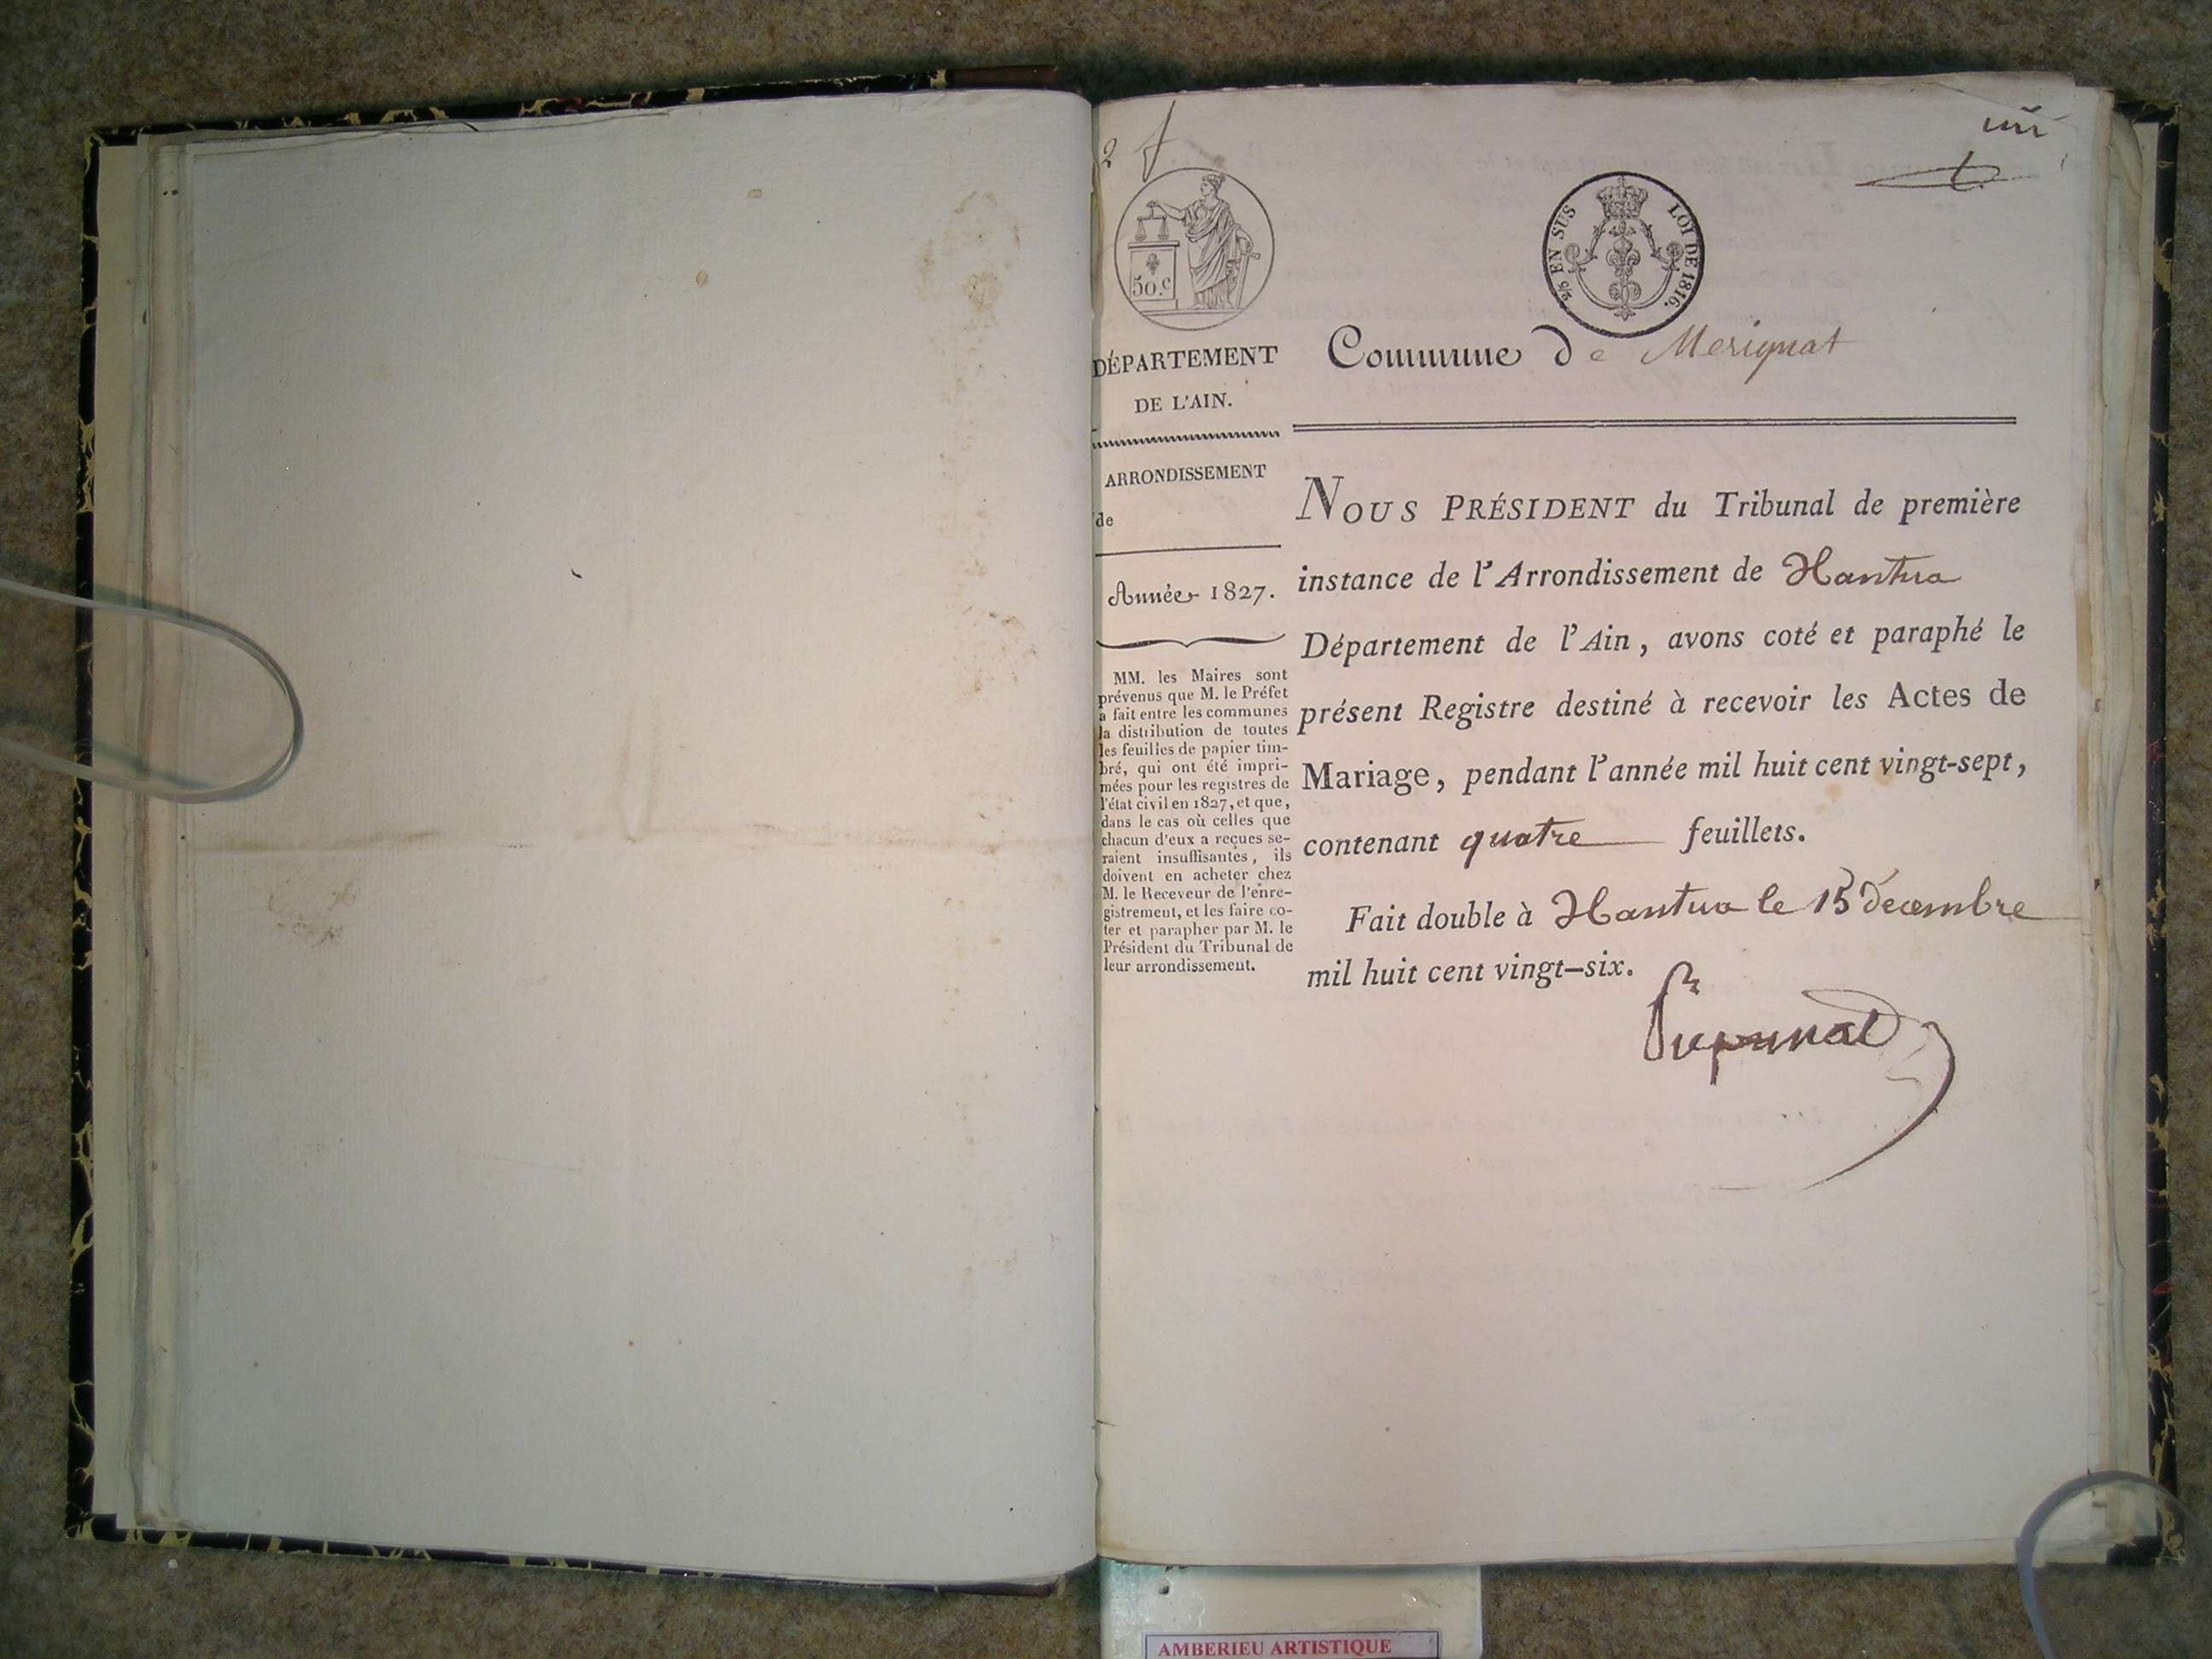 50.c
2/5 EN SUS
LOI DE 1816.
DÉPARTEMENT
DE L'AIN.
ARRONDISSEMENT
de
Année 1827.
MM. les Maires sont
prévenus que M. le Préfet
a fait entre les communes
la distribution de toutes
les feuilles de papier tim-
bré, qui ont été impri-
mées pour les registres de
l'état civil en 1827, et que,
dans le cas où celles que
chacun d'eux a reçues se-
raient insuffisantes, ils
doivent en acheter chez
M. le Receveur de l'enre-
gistrement, et les faire co-
ter et parapher par M. le
Président du Tribunal de
leur arrondissement.
Commune de Merignat
NOUS PRÉSIDENT du Tribunal de première
instance de l'Arrondissement de Nantua
Département de l'Ain, avons coté et paraphé le
présent Registre destiné à recevoir les Actes de
Mariage, pendant l'année mil huit cent vingt-sept,
contenant quatre feuillets.
Fait double à Nantua le 15 decembre
mil huit cent vingt-six.
AMBERIEU ARTISTIQUE